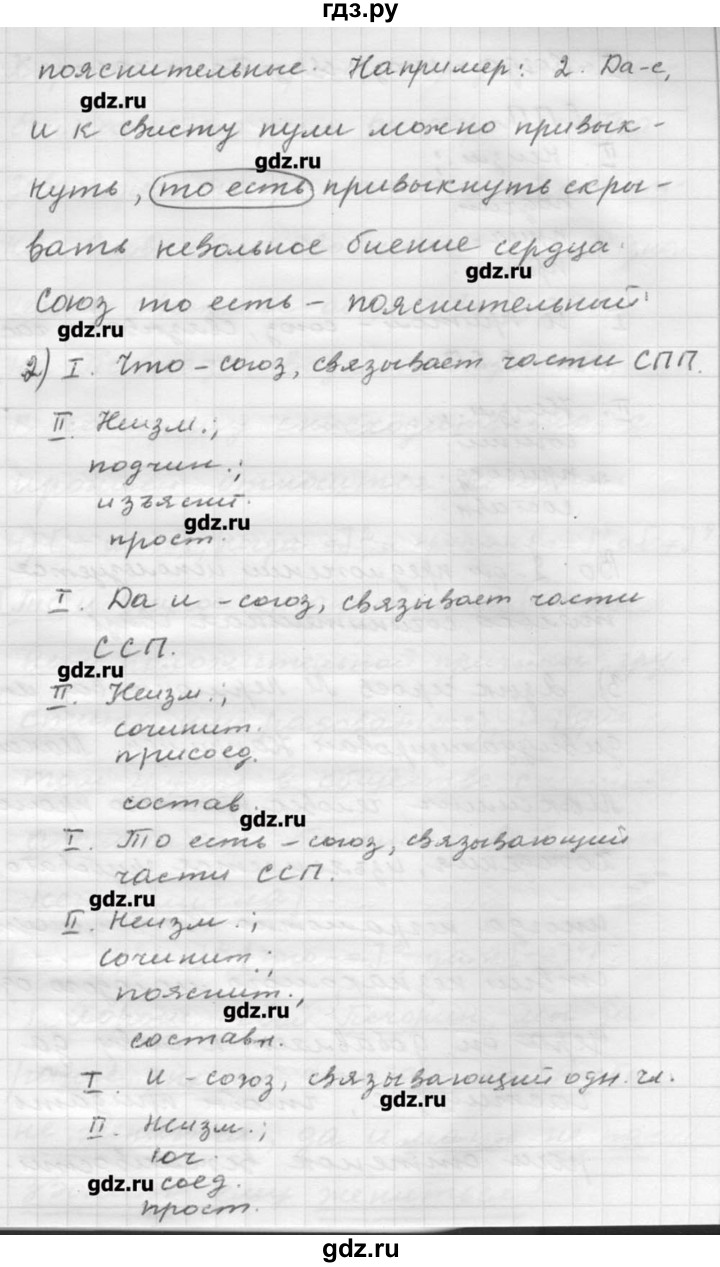 гдз.ру
пояснительные. Например: 2. Да-с,
gdz.ru
и к свисту пули можно привык-
gdz.ru
нуть, то есть привыкнуть скры-
вать невольное биение сердца.
gdz.ru
Союз то есть – пояснительный
gdz.ru
2) I. Что – союз, связывает части СПП.
II. Неизм.;
подчин.;
изъяснит.
gdz.ru
прост.
I. Да и – союз, связывает части
ССП.
gdz.ru
II. Неизм.;
сочинит.
присоед.
состав.
gdz.ru
I. То есть – союз, связывающий
части ССП.
gdz.ru
II. Неизм.;
сочинит.;
пояснит.,
gdz.ru
составн.
I. И – союз, связывающий одн. чл.
gdz.ru
II. Неизм.;
соч.
gdz.ru соед.
прост.
gdz.ru